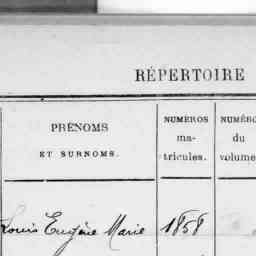 RÉPERTOIRE
PRÉNOMS
ET SURNOMS.
NUMÉROS
ma-
tricules.
NUMÉRO
du
volume
Louis Eugène Marie 1858